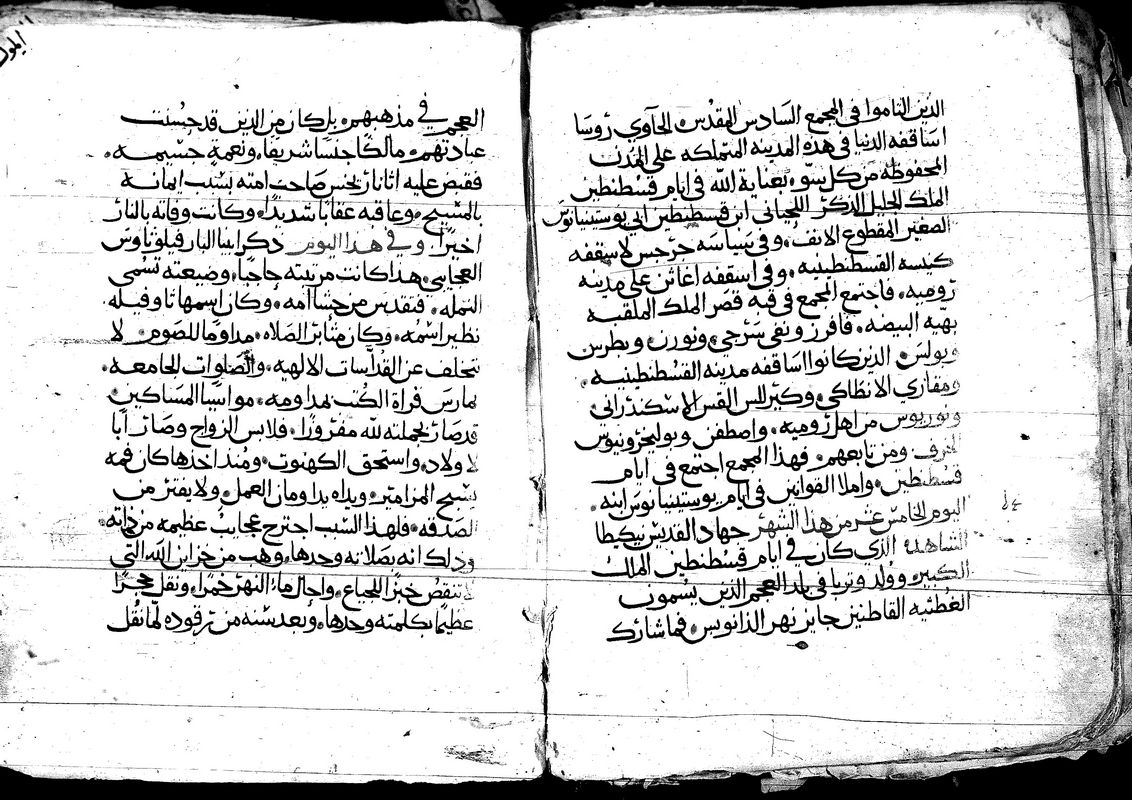 الذين التاموا في المجمع السادس المقدس الحاوي روسا
اساقفه الدنيا في هذه المدينه المتملكه على المدن
المحفوظه من كل سو بعناية الله في ايام قسطنطين
الملك الجليل الذكر اللحياني ابن قسطنطين ابي يوستينيانوس
الصغير المقطوع الانف وفي سياسه جرجس لاسقفه
كنيسه القسطنطينيه وفي اسقفه اغاثن على مدينه
روميه فاجتمع المجمع في قبه قصر الملك الملقبه
بهيه البيضه فافرز ونفى سرجي وفورن وبطرس
وبولس الذين كانوا اساقفه مدينه القسطنطينيه
ومقاري الانطاكي وكيرلس القس الاسكندراني
ونوريوس من اهل روميه واصطفن وبوليخرونيوس
الخرف ومن تابعهم فهذا المجمع اجتمع في ايام
قسطنطين واملا القوانين في ايام يوستينيانوس ابنه
اليوم الخامس عشر من هذا الشهر جهاد القديس نيكيطا
الشاهد الذي كان في ايام قسطنطين الملك
الكبير وولد وتربا في بلد العجم الذين يسمون
الغطثيه القاطنين جايز نهر الذانوبس فما شارك
العجم في مذهبهم بل كان من الذين قد حسنت
عبادتهم مالكا جنسا شريفا ونعمه جسيمه
فقبض عليه اثاناريخس صاحب امته بسبب ايمانه
بالمسيح وعاقبه عقابا شديدا وكانت وفاته بالنار
اخيرا وفي هذا اليوم ذكر ابينا البار فيلوثاوس
العجايبي هذا كانت مرتبته حاجبا وضيعته تسمى
النمله فتقدس من حشا امه وكان اسمها ثاوفيله
نظير اسمه وكان مثابر الصلاه مداوما للصوم لا
يتخلف عن القداسات الالهيه والصلوات الجامعه
يمارس قراة الكتب بمداومه مواسيا المساكين
قد صار بجملته لله مفروزا فلابس الزواج وصار ابا
لاولاد واستحق الكهنوت ومنذ اخذها كان فمه
يسبح المزامير ويداه يداومان العمل ولا يفتر من
الصدقه فلهذا السبب اجترح عجايب عظيمه من ذاته
وذلك انه بصلاته وحدها وهب من خزاين الله التي
لا تنقص خبزا للجياع واحال ماء النهر خمرا ونقل حجرا
عظيما بكلمته وحدها وبعد سنه من رقوده لما نقل